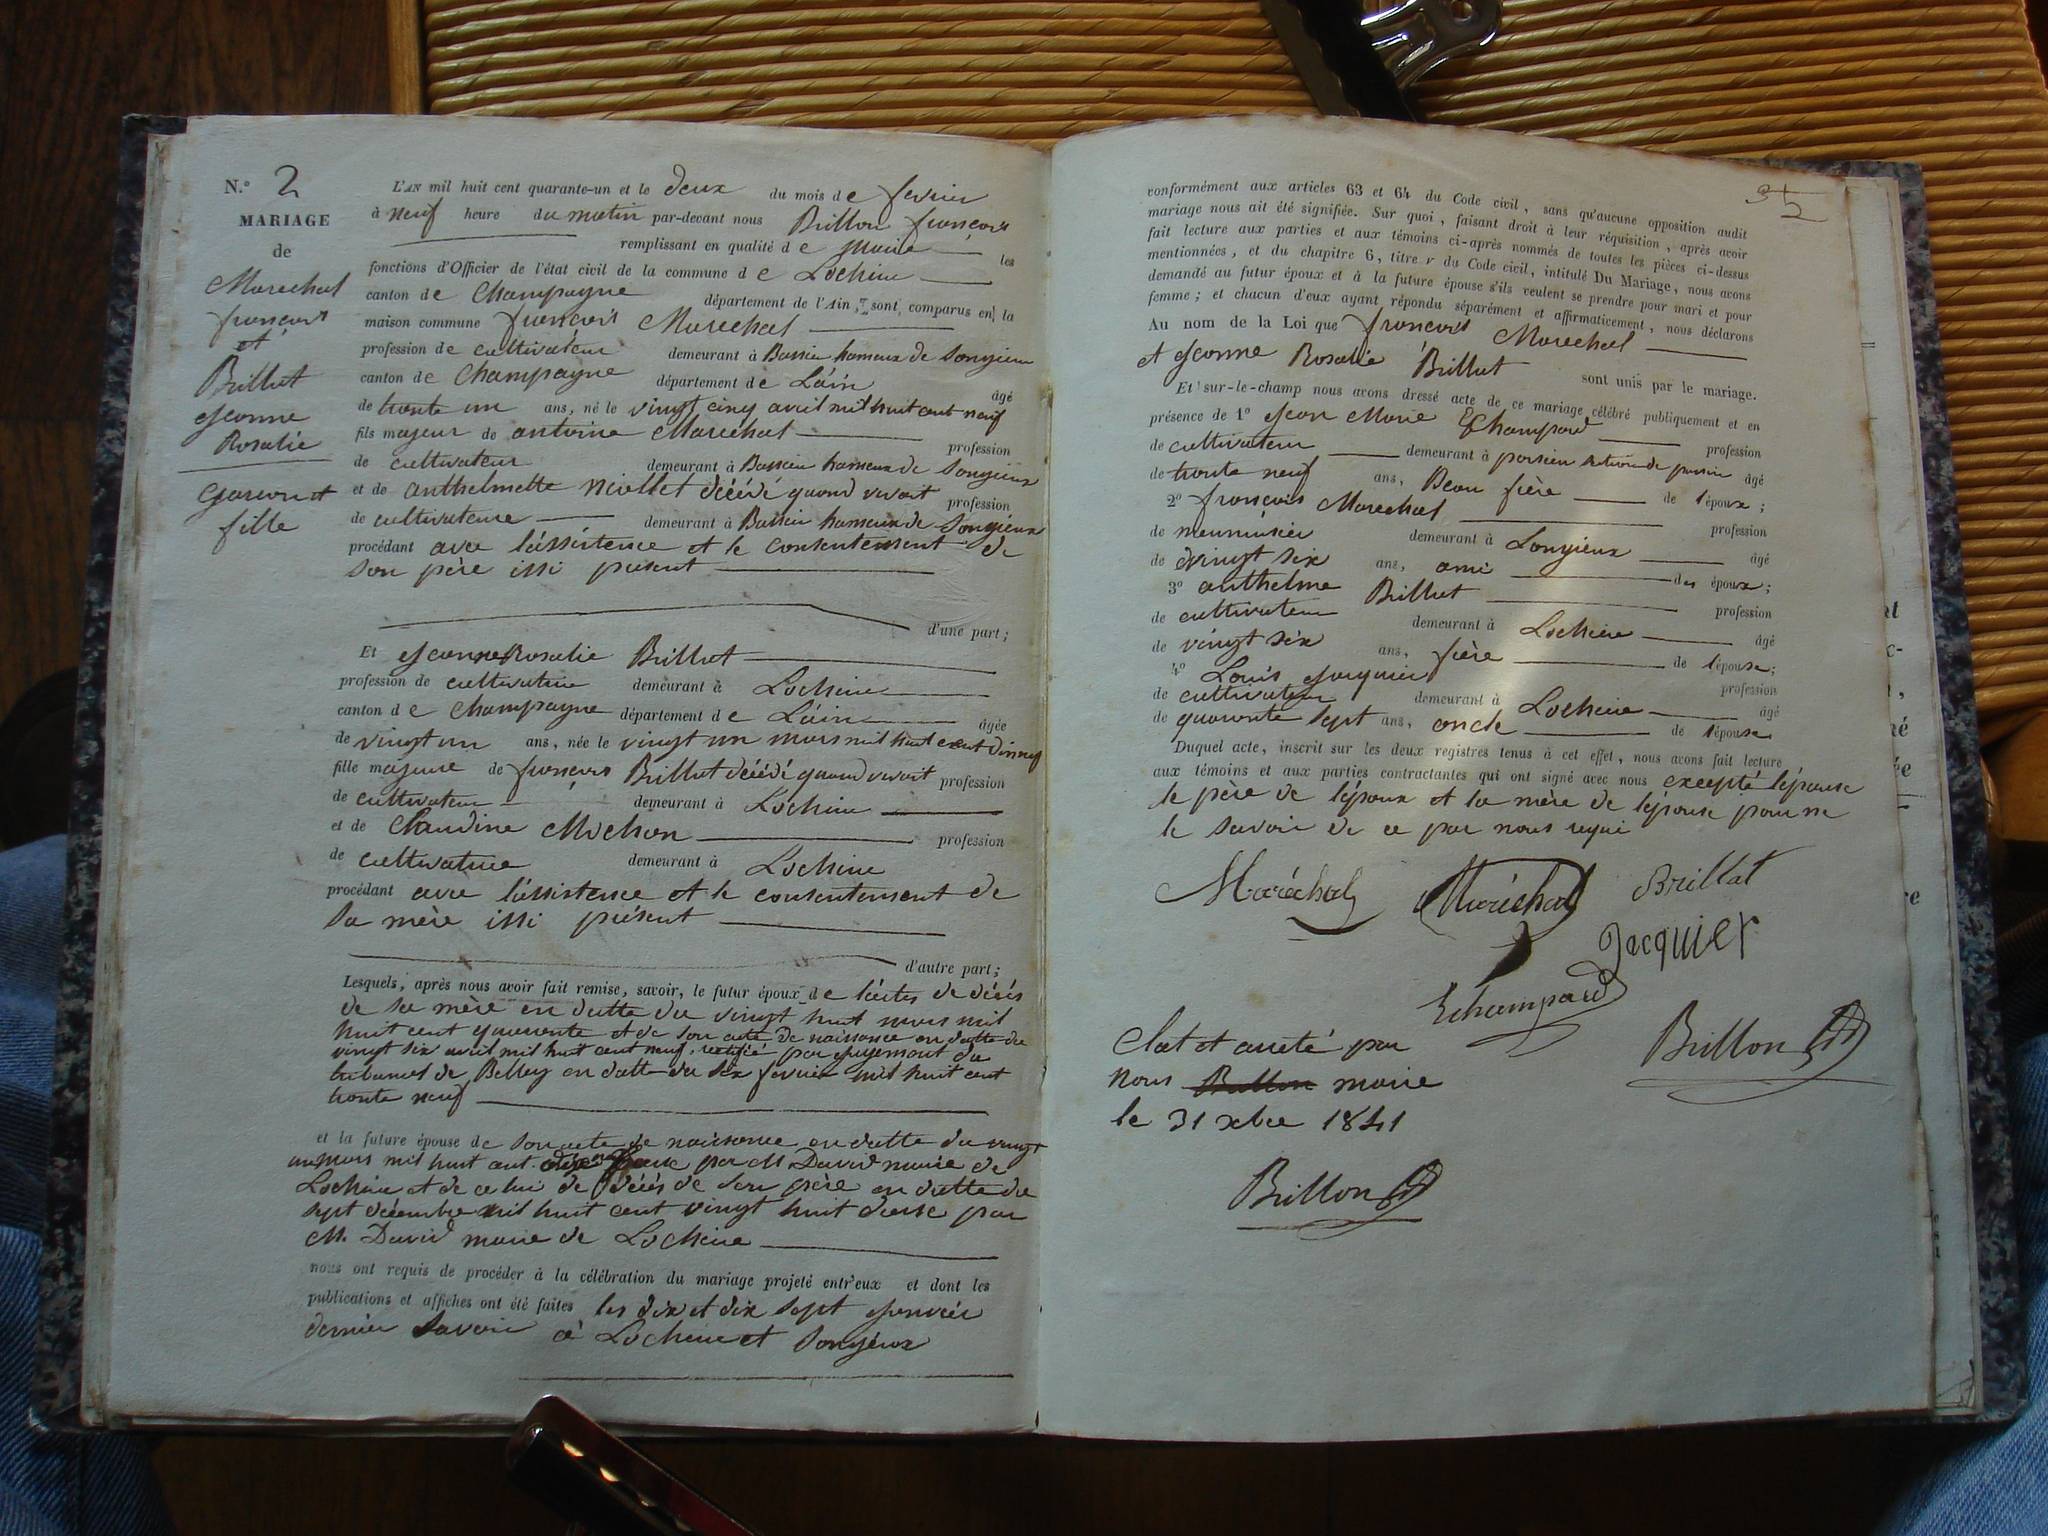 N.o 2
MARIAGE
de
Marechal
françois
et
Brillat
jeanne
Rosalie
garçon et
fille
L'AN mil huit cent quarante-un et le deux du mois de fevrier
à neuf heure du matin par-devant nous Brillon françois
remplissant en qualité de maire les
fonctions d'Officier de l'état civil de la commune de Lochieu
canton de Champagne département de l'Ain, sont comparus en la
maison commune françois Marechal
profession de cultivateur demeurant à Bassieu hameaux de Songieu
canton de Champagne département de Láin âgé
de trente un ans, né le vingt cinq avril mil huit cent neuf
fils majeur de antoine Marechal profession
de cultivateur demeurant à Bassieu hameaux de Songieux
et de anthelmette décédé quand vivait profession
de cultivateure demeurant à Bassieu hameaux de Songieux
procédant avec lássistence et le consentement de
son père issi présent
d'une part;
Et jeanne Rosalie Brillat
profession de cultivatrice demeurant à Lochieu
canton de Champagne département de Láin âgée
de vingt un ans, née le vingt un mars mil huit cent dixneuf
fille majeure de françois Brillat décédé quand vivait profession
de cultivateur demeurant à Lochieu
et de Claudine Mochon profession
de cultivatrice demeurant à Lochieu
procédant avec lássistence et le consentement de
sa mère issi présent
d'autre part;
Lesquels, après nous avoir fait remise, savoir, le futur époux de láctes de décés
de sa mère en datte du vingt huit mars mil
huit cent quarante et de son acte de naissance en datte du
vingt six avril mil huit cent neuf, rectifié par jugement du
tribunal de Belley en datte du six fevrier mil huit cent
trente neuf
et la future épouse de son acte de naissance en datte du vingt
un mars mil huit cent par M. David maire de
Lochieu et de celui de décés de son père en datte du
sept décembre mil huit cent vingt huit par
M. David maire de Lochieu
nous ont requis de procéder à la célébration du mariage projeté entr'eux et dont les
publications et affiches ont été faites les dix et dix sept janvier
dernier savoir à Lochieu et Songieux
3
conformément aux articles 63 et 64 du Code civil, sans qu'aucune opposition audit
mariage nous ait été signifiée. Sur quoi, faisant droit à leur réquisition, après avoir
fait lecture aux parties et aux témoins ci-après nommés de toutes les pièces ci-dessus
mentionnées, et du chapitre 6, titre v du Code civil, intitulé Du Mariage, nous avons
demandé au futur époux et à la future épouse s'ils veulent se prendre pour mari et pour
femme; et chacun d'eux ayant répondu séparément et affirmativement, nous déclarons
Au nom de la Loi que françois Marechal
et jeanne Rosalie Brillat sont unis par le mariage.
Et sur-le-champ nous avons dressé acte de ce mariage célébré publiquement et en
présence de 1o jean Marie Echampard profession
de cultivateur demeurant à âgé
de trente neuf ans, Beau frère de lépoux;
2o françois Marechal profession
de mennusier demeurant à Songieux âgé
de vingt six ans, ami des époux;
3o anthelme Brillat profession
de cultivateur demeurant à Lochieu âgé
de vingt six ans, frère de lépouse;
4o Louis jacquier profession
de cultivateur demeurant à Lochieu âgé
de quarante sept ans, oncle de lépouse
Duquel acte, inscrit sur les deux registres tenus à cet effet, nous avons fait lecture
aux témoins et aux parties contractantes qui ont signé avec nous excepté lépouse
le père de lépoux et la mère de lépouse pour ne
le savoir de ce par nous requi
Maréchal Maréchal Brillat
Jacquier
Echampard
Brillon
Clot et arreté par
nous Brillon maire
le 31 xbre 1841
Brillon